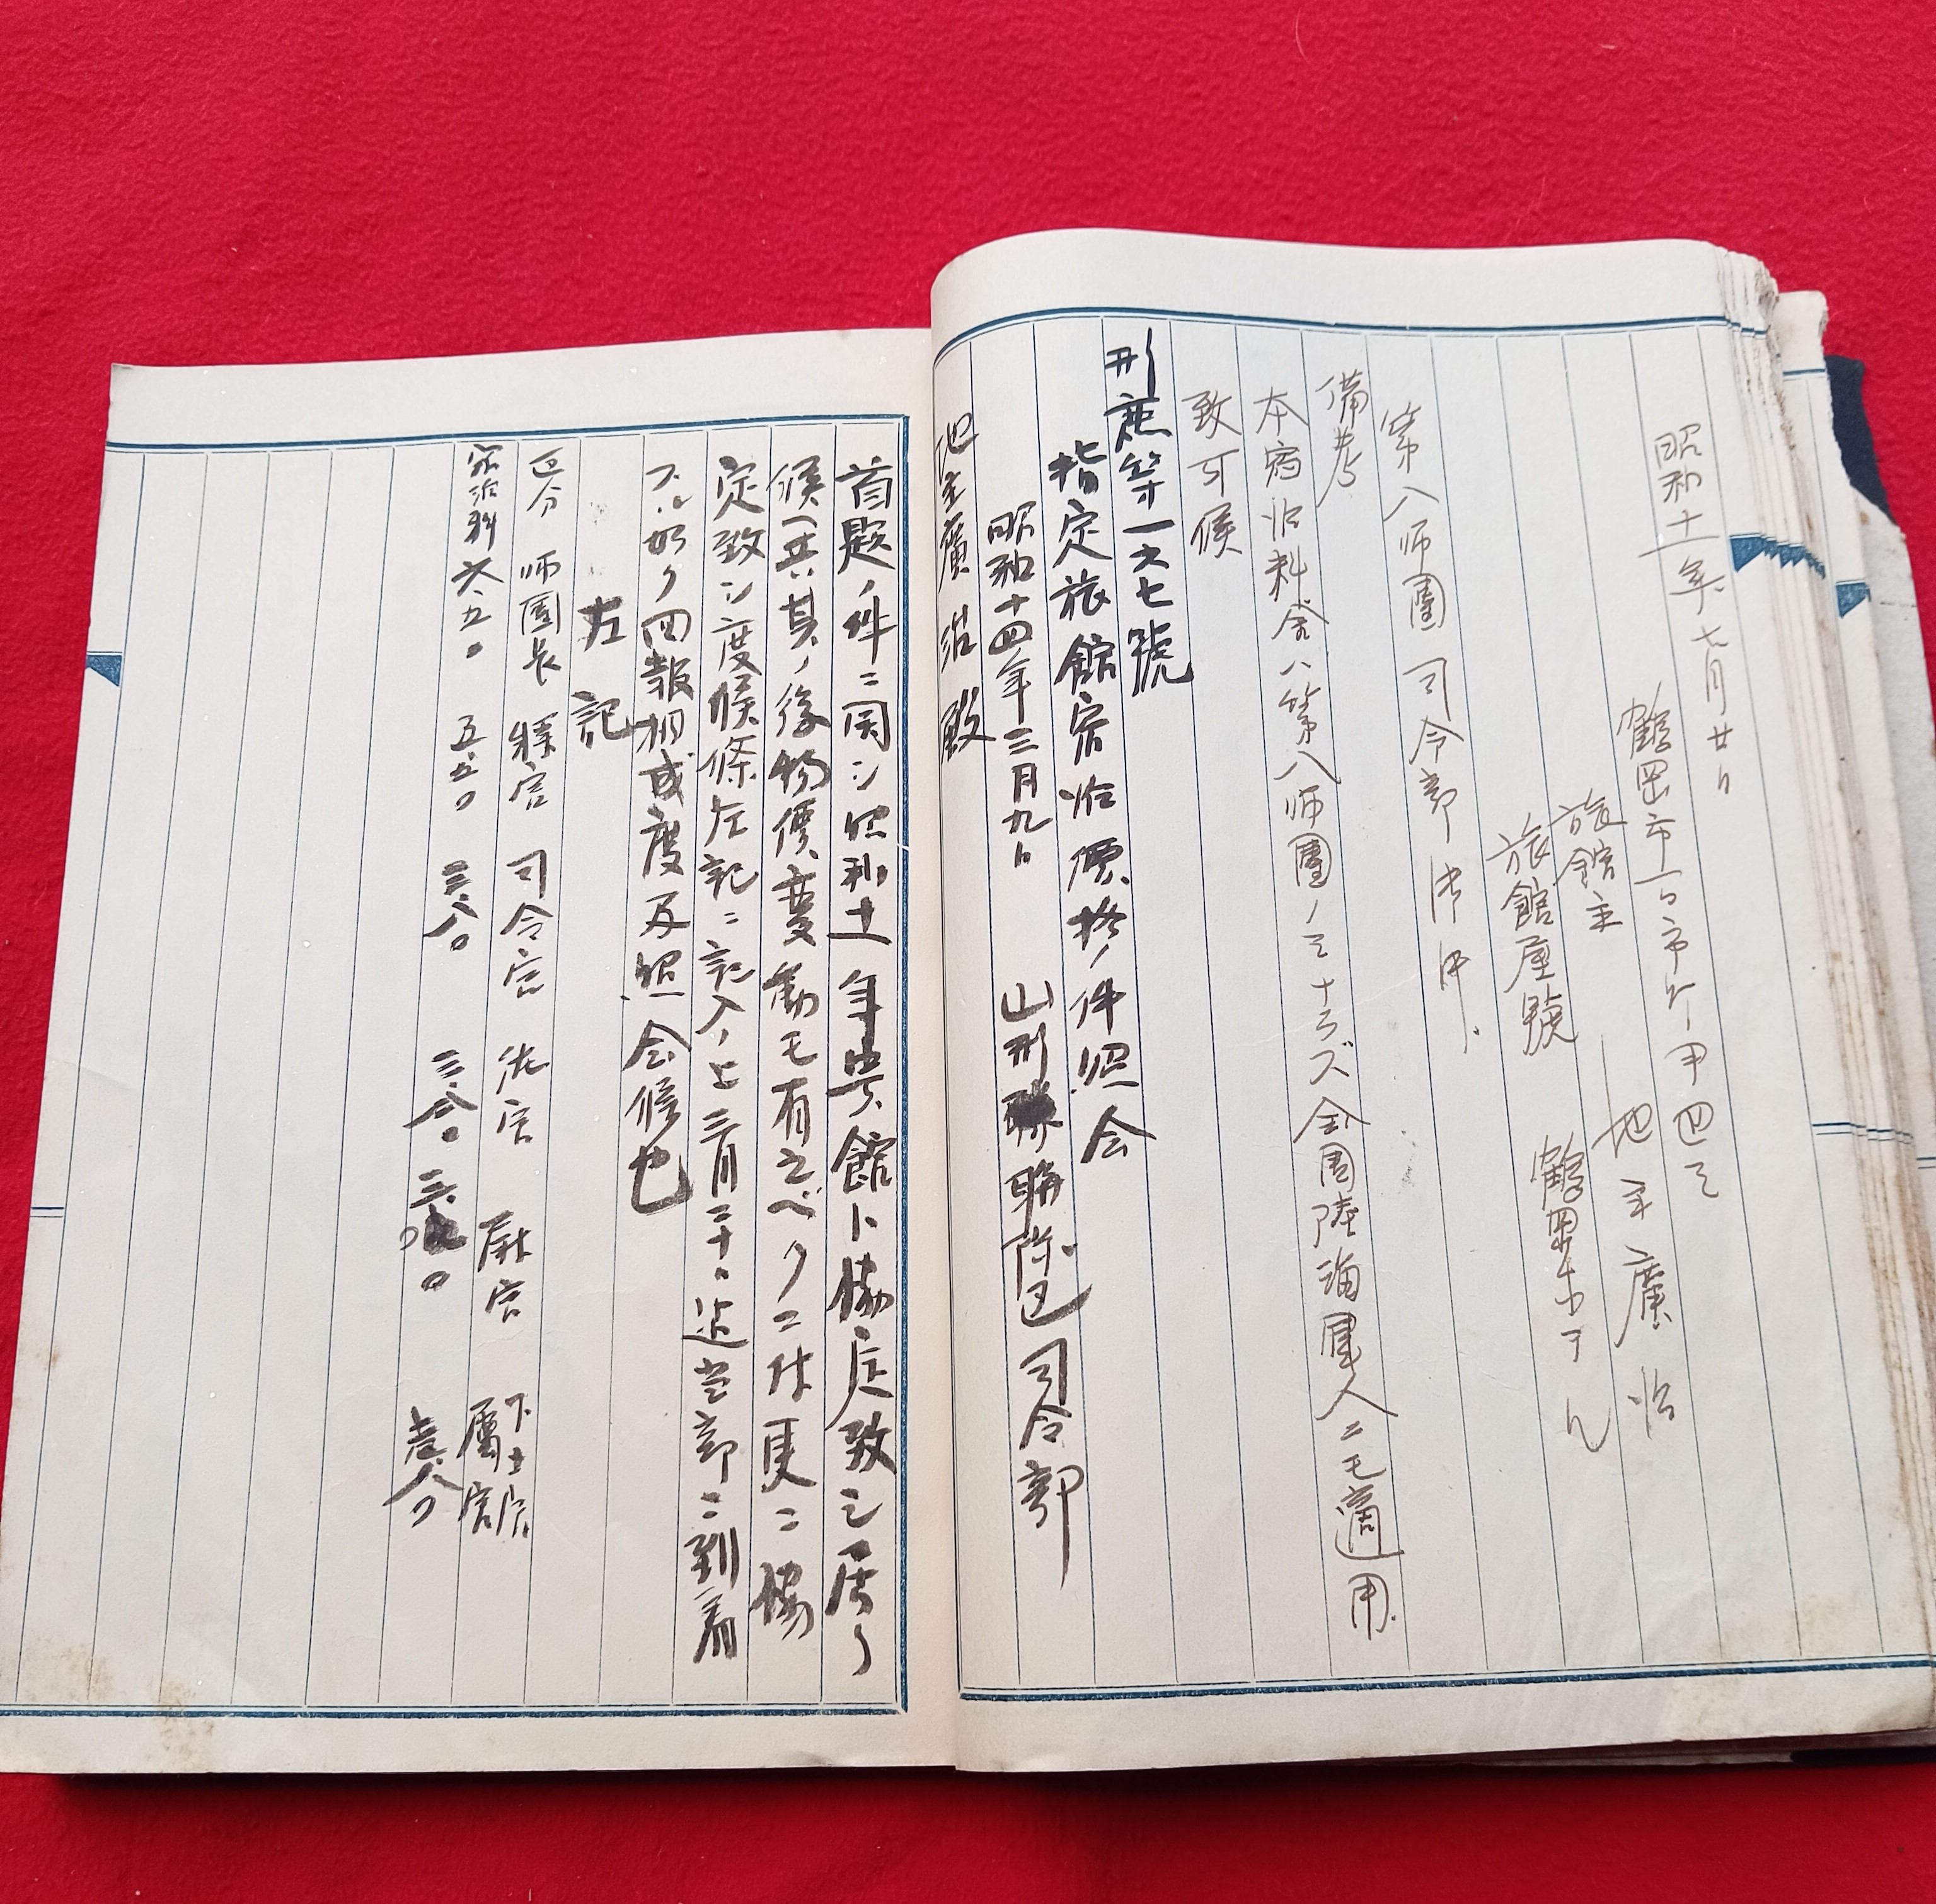 昭和十一年七月廿日
鶴岡市一日市町甲四三
旅館主 地主廣治
旅館屋號 鶴岡ホテル
第八師團司令部御中
備考
本宿泊料金ハ第八師團ノミナラズ全国陸海軍人ニモ適用
致可候
形庶第一六七號
指定旅館宿泊價格ノ件照会
昭和十四年三月九日 山形聯隊区司令部
地主廣治殿
首題ノ件ニ関シ昭和十一年貴館ト協定致シ居リ
候ヘ共其ノ後物價変動モ有之ベクニ付更ニ協
定致シ度候條左記ニ記入ノ上三月二十日迄当部ニ到着
スル如ク回報相成度及照会候也
左記
区分 師團長 将官 司令官 佐官 尉官 下士官 属官
宿泊料 六.五〇 五.五〇 三.八〇 三.八〇